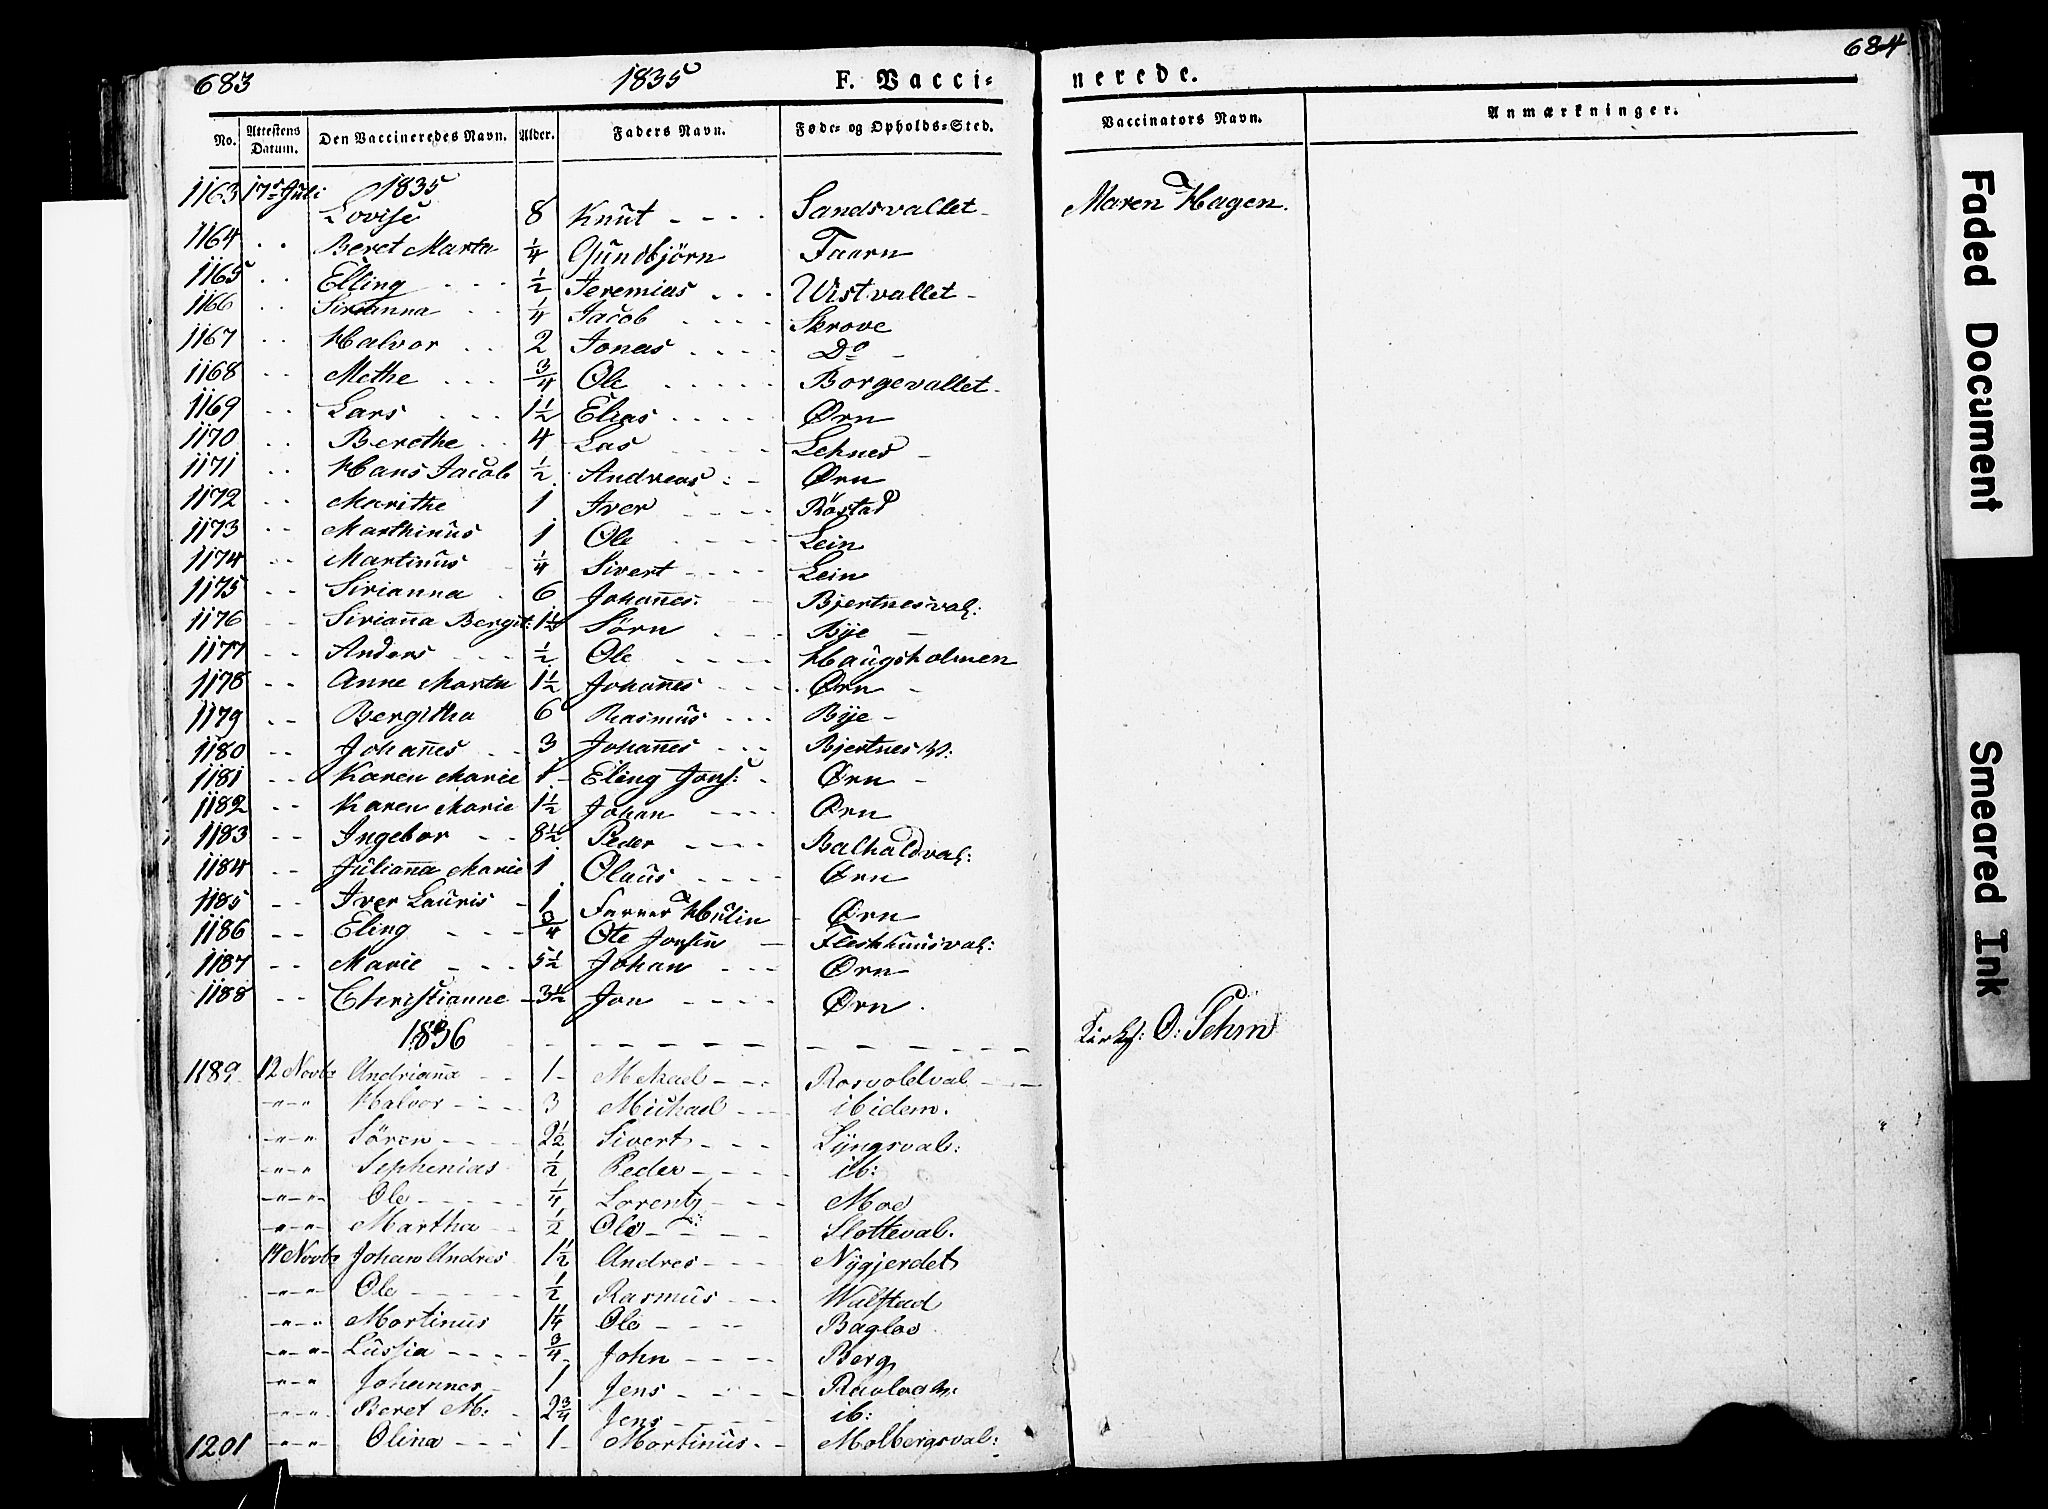 683 1835 F. Vacci= nerede. 684
No. Attestens Datum. Den Vaccineredes Navn. Alder. Faders Navn. Føde- og Opholds=Sted. Vaccinators Navn. Anmærkninger.
1835
1163 17de Juli Lovise 8 Knut - - - - Sandsvallet - Maren Hagen.
1164 - - Beret Marta 1/4 Gundbjörn Faarn
1165 - - Elling - - - 1/2 Jeremias - - - Wistvallet -
1166 - - Sirianna - - 1/4 Jacob - - - - Skrove
1167 - - Halvor - - 2 Jonas - - - - Do -
1168 - - Methe - - - 3/4 Ole - - - - - Borgevallet -
1169 - - Lars - - - 1 1/2 Elias - - - - Ørn
1170 - - Berethe - - 4 Las - - - - Lehnes -
1171 - - Hans Jacob 1/2 Andreas - - Ørn
1172 - - Marithe 1 Iver - - - - Röstad
1173 - - Marthinus 1 Ole - - - - Lein
1174 - - Martinus 1/4 Sivert - - - - Lein
1175 - - Sirianna - 6 Johannes: - - Bjertnesval:
1176 - - Sirianna Bergit: 1 1/2 Sörn - - - Bye -
1177 - - Anders - - - 1/2 Ole - - - - Haugsholmen
1178 - - Anne Marta 1 1/2 Johannes - - - Ørn -
1179 - - Bergitha 6 Rasmus - - - Bye -
1180 - - Johannes - - 3 Johannes - - - Bjertnes W:
1181 - - Karen Marie 1 - Eling Jons: - Ørn -
1182 - - Karen Marie 1 1/2 Johan - - - - Ørn
1183 - - Ingebor - - 8 1/2 Peder - - - - Balhaldval:
1184 - - Julianna Marie 1 Olaus - - - - Ørn
1185 - - Iver Lauris - 1 Farver Hulin - Ørn
1186 - - Eling - - - 3/4 Ole Jonsen - Fleskhuusval:
1187 - - Marie - - - 5 1/2 Johan - - - Ørn
1188 - - Christianne - 3 1/2 Jon - - - - Ørn.
1836 - - - - - - - - - - - - Kirks: O: Sehm
1189 12 Novbr Andrianna - - 1 - Mekael - - - Rosvoldval - - -
-"-" Halvor - - - 3 Michael - - - ibidem.
-"-" Sören - - - - 2 1/2 Sivert - - - Lyngsval:
-"-" Sephenias 1/2 Peder - - - - ib:
-"-" Ole - - - - - 1/4 Lorentz - - - Moe
-"-" Martha - - 1/2 Ole - - - - Slotteval.
14 Novbr Johan Andres 1 1/2 Andres - - - - Nygjerdet
-"-" Ole - - - - - 1/2 Rasmus - - - Walstad
-"-" Mortinus 1 1/4 Ole - - - - Bagloe
-"-" Lussia - - - - 3/4 John - - - - Berg
-"-" Johannes - 1 Jens - - - -
-"-" Beret M: - 2 3/4 Jens - - - - ib:
1201 -"-" Olina - - - 1 - Mortinus - - Molbergsval:
Faded Document
Smeared Ink